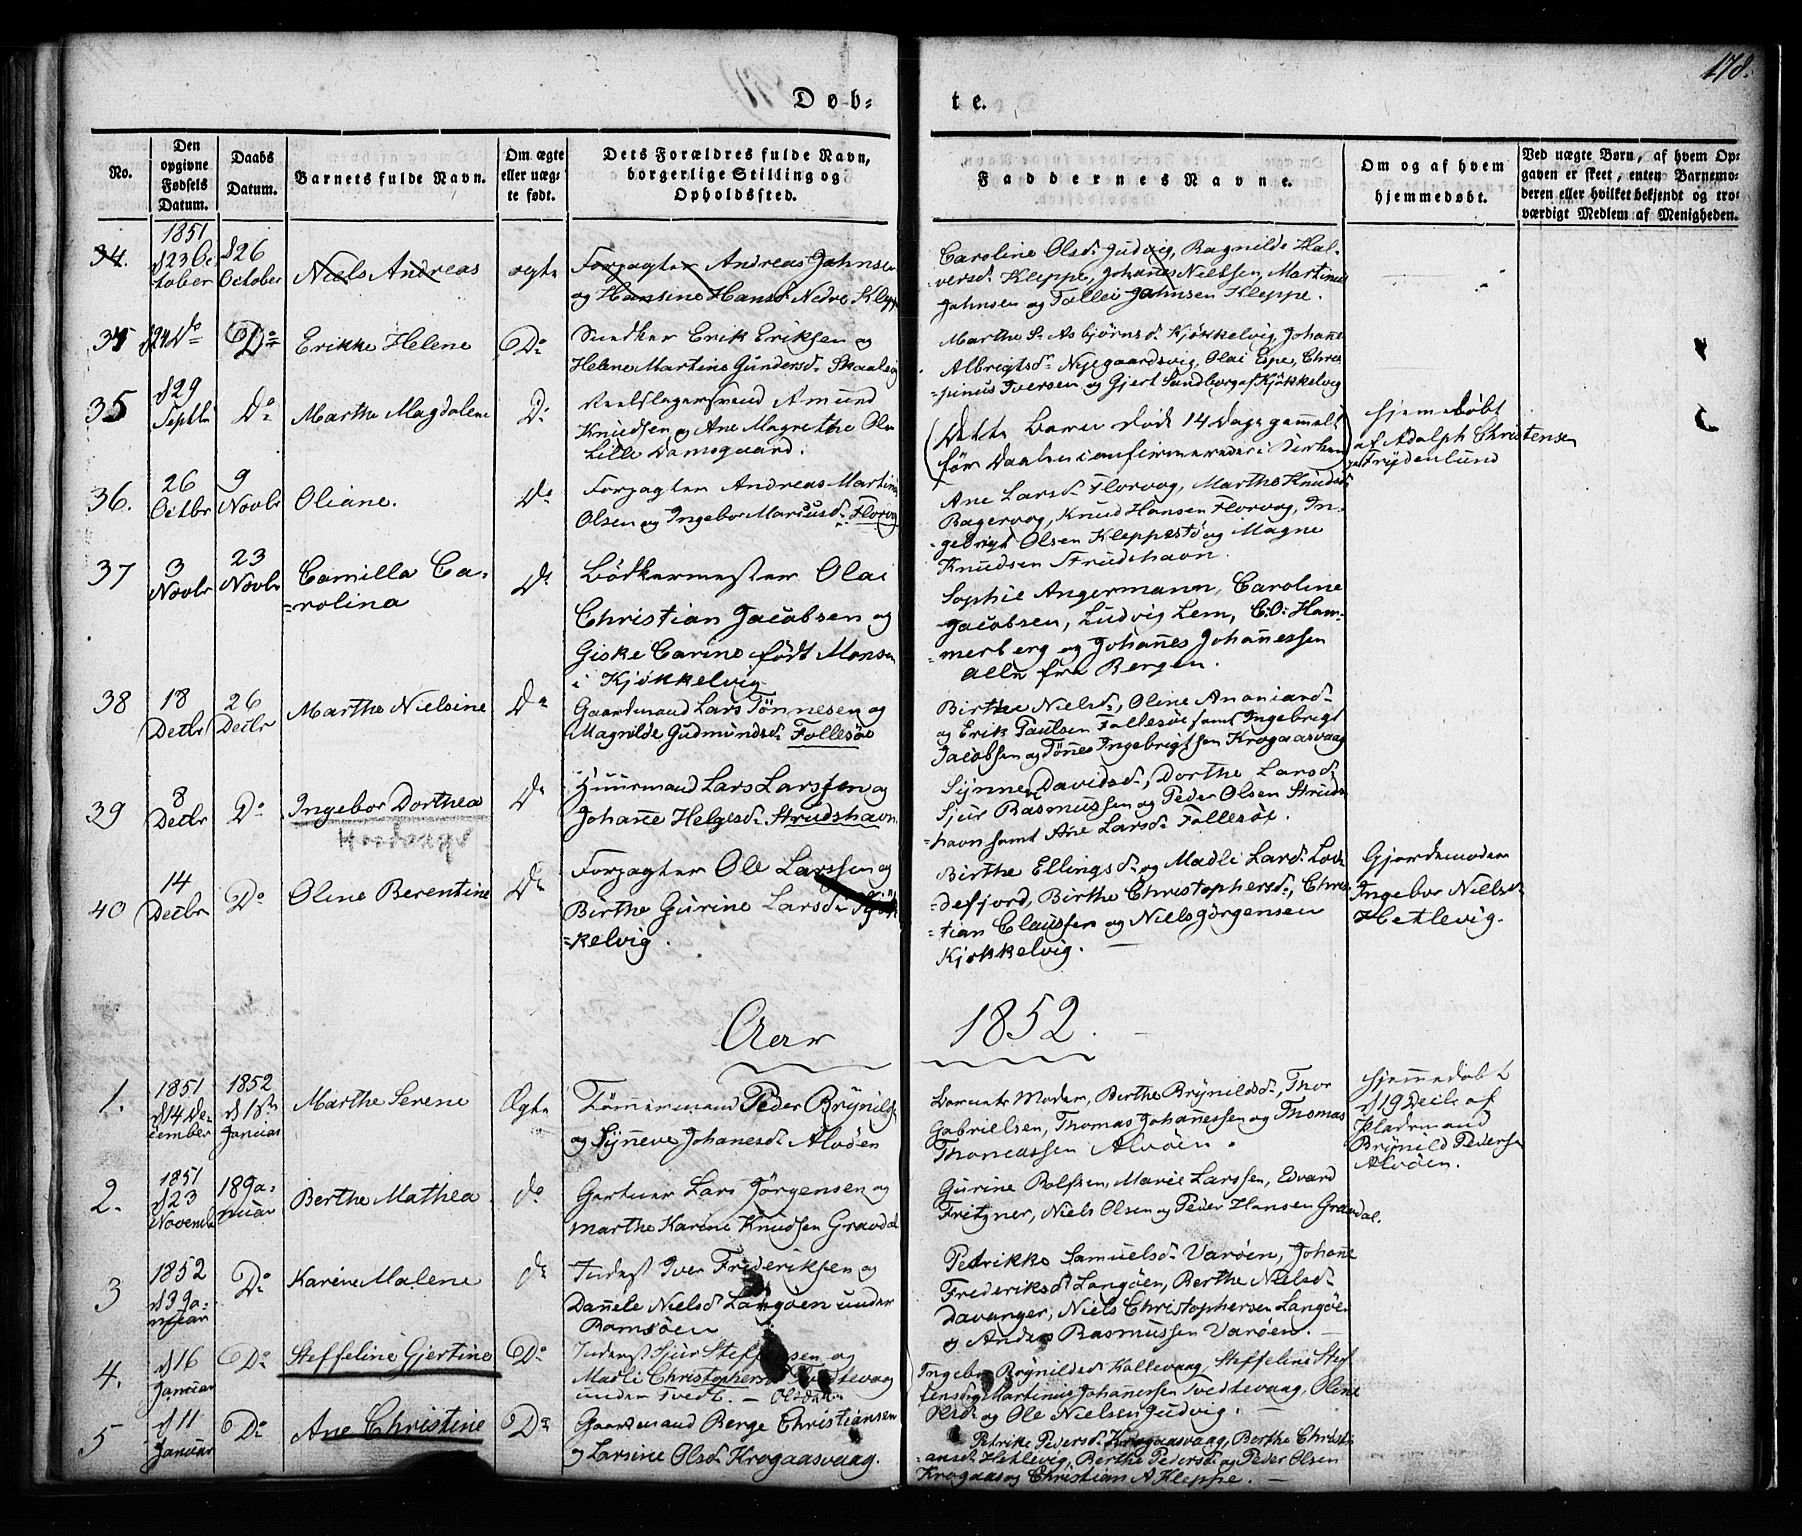 178.
Døb-
te.
No.
Den opgivne Fødsels Datum.
Daabs Datum.
Barnets fulde Navn.
Om ægte eller uægte født.
Dets Forældres fulde Navn, borgerlige Stilling og Opholdssted.
Faddernes Navne.
Om og af hvem hjemmedøbt.
Ved uægte Børn, af hvem Opgaven er skeet, enten Barnemoderen eller hvilket bekjendt og troværdigt Medlem af Menigheden.
34.
1851
d 23 Oc-
tober
d 26
October
Niels Andreas
ægte
Forpagter Andreas Jahnsen
og Hansine Hansd. Nedre Klepp
Caroline Olsd. Judvig, Ragnilde Hal-
versd. Kleppe, Johannes Nielssen, Martinus
Jahnsen og Tollei Jahnsen Kleppe.
34
d 24 Do
Do
Erikke Helene
Do
Snedker Erik Eriksen og
Helene Martine Gundersd. Skaalvig
Marthe S. Asbjørnsd. Kjøkkelvig, Johanne
Albrigtsd. Nygaardsvig, Olai Espe, Chris-
pinus Iversen og Gjert Sundborg af Kjøkkelvig
35
d 29
Septbr
Do
Marthe Magdalene
Do
Reebslagersvend Amund
Knudsen og Ane Magrethe Olsd
Lille Damsgaard.
(Dette Barn døde 14 Dage gammel
før Daaben confirmeredes i Kirken)
Hjemedøbt
af Adolph Christensen
paa Frydenlund
36.
26
Octbr
9
Novbr
Oliane.
Do
Forpagter Andreas Martin
Olsen og Ingebor Marcusd. Florvog
Ane Larsd. Florvog, Marthe Knudsd.
Bagervog, Knud Hansen Florvog, In-
gebrigt Olsen Kleppestø og Magne
Knudsen Strudshavn.
37
3
Novbr
23
Novbr
Camilla Ca-
=rolina
Do
Bødkermester Olai
Christian Jacobsen og
Giske Carine født Monsen
i Kjøkkelvig
Sophie Angermann, Caroline
Jacobsen, Ludvig Lem, C. O. Ham-
merberg og Johannes Johannessen
alle fra Bergen.
38
18
Decbr
26
Decbr
Marthe Nielsine
Do
Gaardmand Lars Tønnesen og
Magnilde Gudmundsd. Follesøe
Birthe Nielsd., Oline Ananiasd.
og Erik Paulsen Follesøe samt Ingebrigt
Jacobsen og Tønnes Ingebrigtsen Krogaasvaag
39
8
Decbr
Do
Ingebor Dorthea
Do
Huusmand Lars Larssen og
Johanne Helgesd. Strudshavn
Synneve Davidsd., Dorthe Larsd.
Sjur Rasmussen og Peder Olsen Struds-
=havn samt Ane Larsd. Follesøe.
40
14
Decbr
Do
Oline Berentine
Do
Forpagter Ole Larssen og
Birthe Gurine Larsd. Kjøk-
=kelvig.
Birthe Ellingsd. og Madli Larsd. Lod-
=defjord, Birthe Christophersd., Chris-
=tian Claussen og Niels Jørgensen
Kjøkkelvig.
Gjordemoder
Ingebor Nielsd
Hetlevig.
Aar
1852.
1.
1851
d 14 De-
cember
1852
d 1ste
Januar
Marthe Serene
Ægte
Tømmermand Peder Brynilds.
og Synneve Johanesd. Alvøen
Barnets Moder, Berthe Brynildsd., Thor
Gabrielsen, Thomas Johannessen og Thomas
Thomassen Alvøen.
Hjemmedøbt
d 19 Decbr af
Pladsmand
Brynild Peders
Alvøen.
2.
1851
d 23
Novemb
18 Ja-
nuar
Berthe Mathea
do
Gartner Lars Jørgensen og
Marthe Karine Knudsen Gravdal
Gurine Rolfsen, Marie Larssen, Edvard
Fritzner, Niels Olsen og Peder Hansen Gravdal.
3
1852
d 3 Ja-
nuar
Do
Karine Malene
do
Inderst Iver Frederiksen og
Danele Nielsd. Langøen under
Ramsøen
Petrikke Samuelsd. Varøen, Johanne
Frederiksd. Langøen, Berthe Nielsd.
Davanger, Niels Christophersen Langøen
og Anders Rasmussen Varøen.
4.
d 16
Januar
Do
Steffeline Gjertine
Do
Inderst Sjur Steffensen og
Madli Christophersd. Tvedtevaag
under Tvedt. – Olsdtr.
Ingebor Brynildsd. Kallevaag, Steffeline Stef-
fensd. og Martinus Johannessen Tvedtevaag, Oline
Olsd. og Ole Nielsen Judvig.
5
d 11
Januar
Do
Ane Christine
Do
Gaardmand Berge Christiansen
og Larsine Olsd. Krogaasvaag.
Petrike Pedersd. Krogaasvaag, Berthe Christi-
ansd. Hetlevig, Berthe Pedersd. og Peder Olsen
Krogaasvog Christian A. Kleppe.